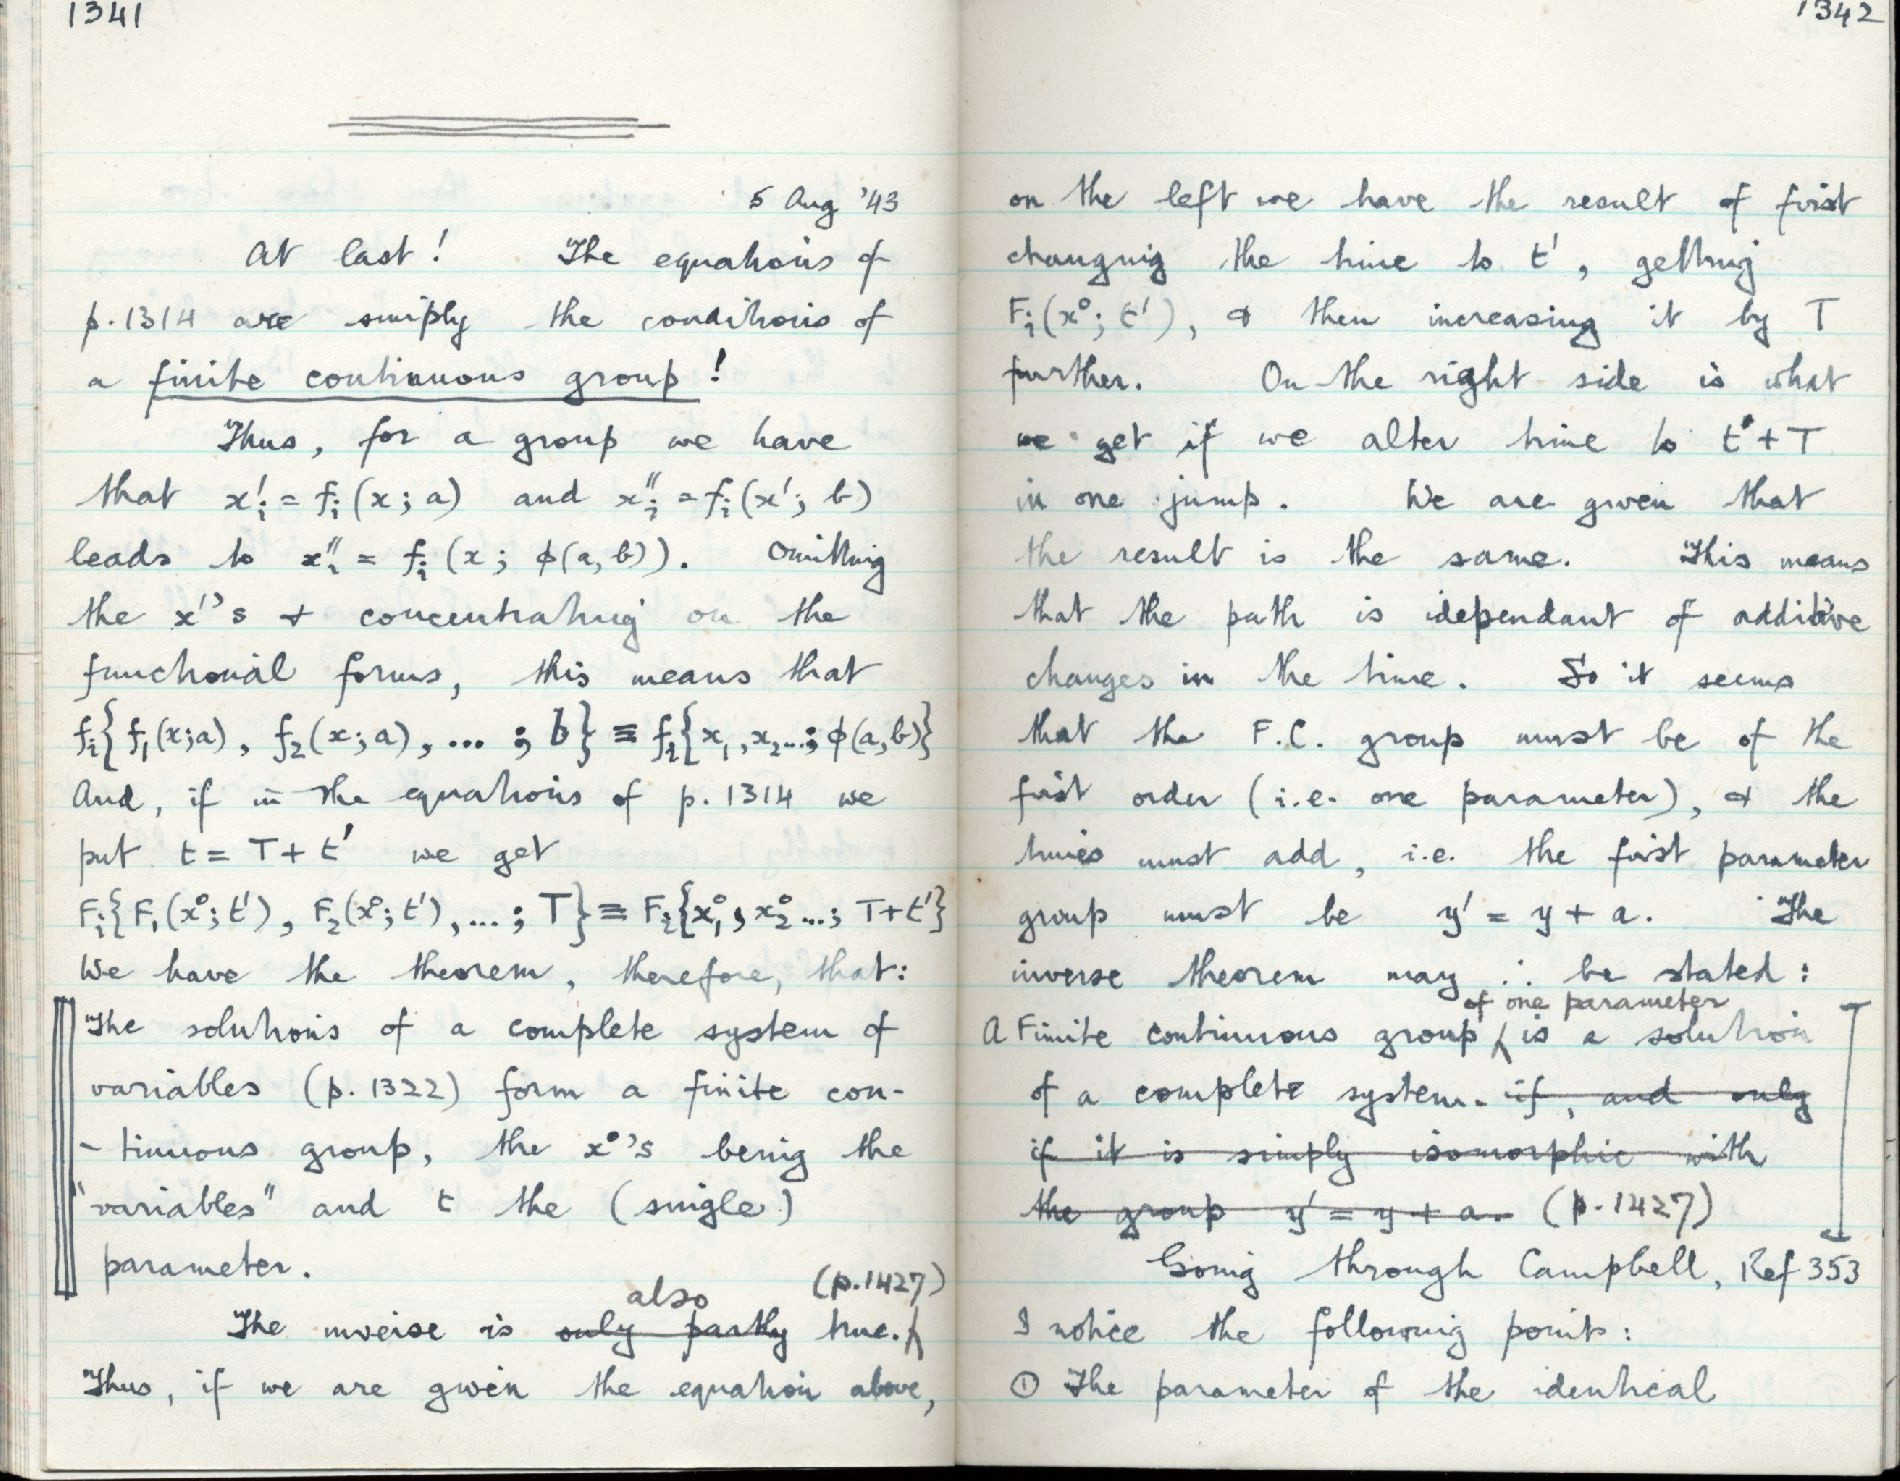 1341
5 Aug '43
At last! The equations of
p.1314 are simply the conditions of
a finite continuous group!
Thus, for a group we have
that x'ᵢ = fᵢ(x; a) and x''ᵢ = fᵢ(x'; b)
leads to x''ᵢ = fᵢ(x; φ(a,b)). Omitting
the x''s & concentrating on the
functional forms, this means that
fᵢ{f₁(x;a), f₂(x;a), ... ; b} ≡ fᵢ{x₁, x₂...; φ(a,b)}
And, if in the equations of p.1314 we
put t = T + t' we get
Fᵢ{F₁(x⁰; t'), F₂(x⁰; t'), ...; T} ≡ Fᵢ{x₁⁰, x₂⁰...; T+t'}
We have the theorem, therefore, that:
The solutions of a complete system of
variables (p. 1322) form a finite con-
-tinuous group, the x⁰'s being the
"variables" and t the (single)
parameter.
also (p.1427)
The inverse is only partly true.
Thus, if we are given the equation above,
1342
on the left we have the result of first
changing the time to t', getting
Fᵢ(x⁰; t'), & then increasing it by T
further. On the right side is what
we get if we alter time to t'+T
in one jump. We are given that
the result is the same. This means
that the path is idependant of additive
changes in the time. So it seems
that the F.C. group must be of the
first order (i.e. one parameter), & the
times must add, i.e. the first parameter
group must be y' = y + a. The
inverse theorem may ∴ be stated:
of one parameter
A Finite continuous group is a solution
of a complete system. if, and only
if it is simply isomorphic with
the group y' = y + a. (p.1427)
Going through Campbell, Ref 353
I notice the following points:
① The parameter of the identical